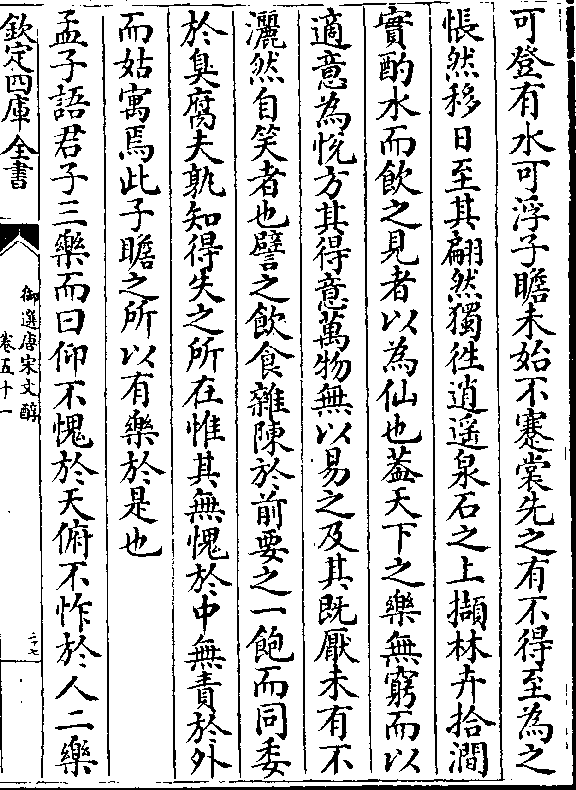 可登有水可浮子瞻未始不蹇裳先之有不得至為之
悵然移日至其翩然獨徃逍遥泉石之上擷林卉拾澗
實酌水而飲之見者以為仙也葢天下之樂無窮而以
適意為悦方其得意萬物無以易之及其既厭未有不
灑然自笑者也譬之飲食雜陳於前要之一飽而同委
於臭腐夫孰知得失之所在惟其無愧於中無責於外
而姑寓焉此子瞻之所以有樂於是也
孟子語君子三樂而曰仰不愧於天俯不怍於人二樂
欽定四庫全書
御選唐宋文醇
卷五十一
二七